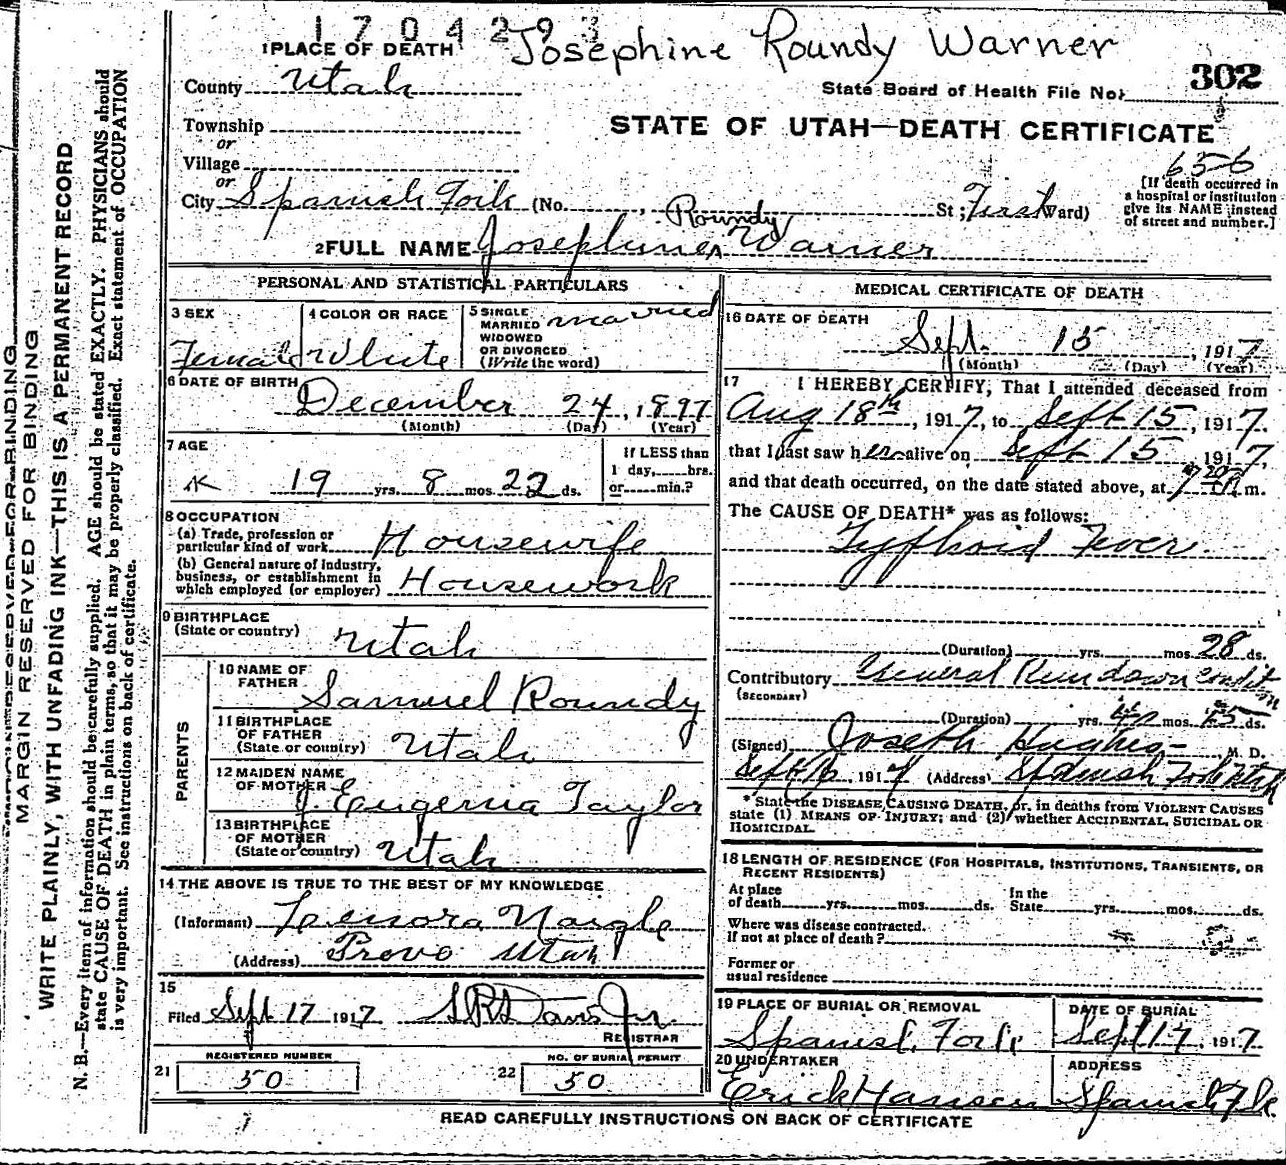 1704293
Josephine Roundy Warner
1 PLACE OF DEATH
302
County Utah
State Board of Health File No.
Township
STATE OF UTAH—DEATH CERTIFICATE
or
Village
656
or
City Spanish Fork (No. St; First Ward)
[If death occurred in
a hospital or institution
give its NAME instead
of street and number.]
Roundy
2 FULL NAME Josephine ^ Warner
PERSONAL AND STATISTICAL PARTICULARS
3 SEX
Female
4 COLOR OR RACE
White
5 SINGLE
MARRIED
WIDOWED
OR DIVORCED
(Write the word)
married
6 DATE OF BIRTH
December 24, 1897
(Month) (Day) (Year)
7 AGE
19 yrs. 8 mos. 22 ds.
If LESS than
1 day, hrs.
or min.?
8 OCCUPATION
(a) Trade, profession or
particular kind of work Housewife
(b) General nature of Industry,
business, or establishment in
which employed (or employer) Housework
9 BIRTHPLACE
(State or country) Utah
PARENTS
10 NAME OF
FATHER Samuel Roundy
11 BIRTHPLACE
OF FATHER
(State or country) Utah
12 MAIDEN NAME
OF MOTHER J. Eugenia Taylor
13 BIRTHPLACE
OF MOTHER
(State or country) Utah
14 THE ABOVE IS TRUE TO THE BEST OF MY KNOWLEDGE
(Informant) Lenora Naigle
(Address) Provo Utah
15
Filed Sept 17 1917 Davis Jr.
REGISTRAR
REGISTERED NUMBER
21 50
NO. OF BURIAL PERMIT
22 50
MEDICAL CERTIFICATE OF DEATH
16 DATE OF DEATH
Sept. 15, 1917
(Month) (Day) (Year)
17 I HEREBY CERTIFY, That I attended deceased from
Aug 18th, 1917, to Sept 15, 1917.
that I last saw her alive on Sept 15 1917,
and that death occurred, on the date stated above, at 7 20 m.
The CAUSE OF DEATH* was as follows:
Tyfhoid Fever.
(Duration) yrs. mos. 28 ds.
Contributory General Run down condit
(SECONDARY)
(Duration) yrs. mos. ds.
(Signed) Joseph Hughes— M. D.
Sept 16, 1917 (Address) Spanish Fork Utah
* State the DISEASE CAUSING DEATH, or, in deaths from VIOLENT CAUSES
state (1) MEANS OF INJURY; and (2) whether ACCIDENTAL, SUICIDAL OR
HOMICIDAL.
18 LENGTH OF RESIDENCE (FOR HOSPITALS, INSTITUTIONS, TRANSIENTS, OR
RECENT RESIDENTS)
At place
of death yrs. mos. ds.
In the
State yrs. mos. ds.
Where was disease contracted.
if not at place of death?
Former or
usual residence
19 PLACE OF BURIAL OR REMOVAL
Spanish Fork
DATE OF BURIAL
Sept 17, 1917.
20 UNDERTAKER
Erick Hansen
ADDRESS
Spanish Fk
READ CAREFULLY INSTRUCTIONS ON BACK OF CERTIFICATE
MARGIN RESERVED FOR BINDING
MARGIN RESERVED FOR BINDING
WRITE PLAINLY, WITH UNFADING INK—THIS IS A PERMANENT RECORD
N. B.—Every item of information should be carefully supplied. AGE should be stated EXACTLY. PHYSICIANS should
state CAUSE OF DEATH in plain terms, so that it may be properly classified. Exact statement of OCCUPATION
is very important. See instructions on back of certificate.